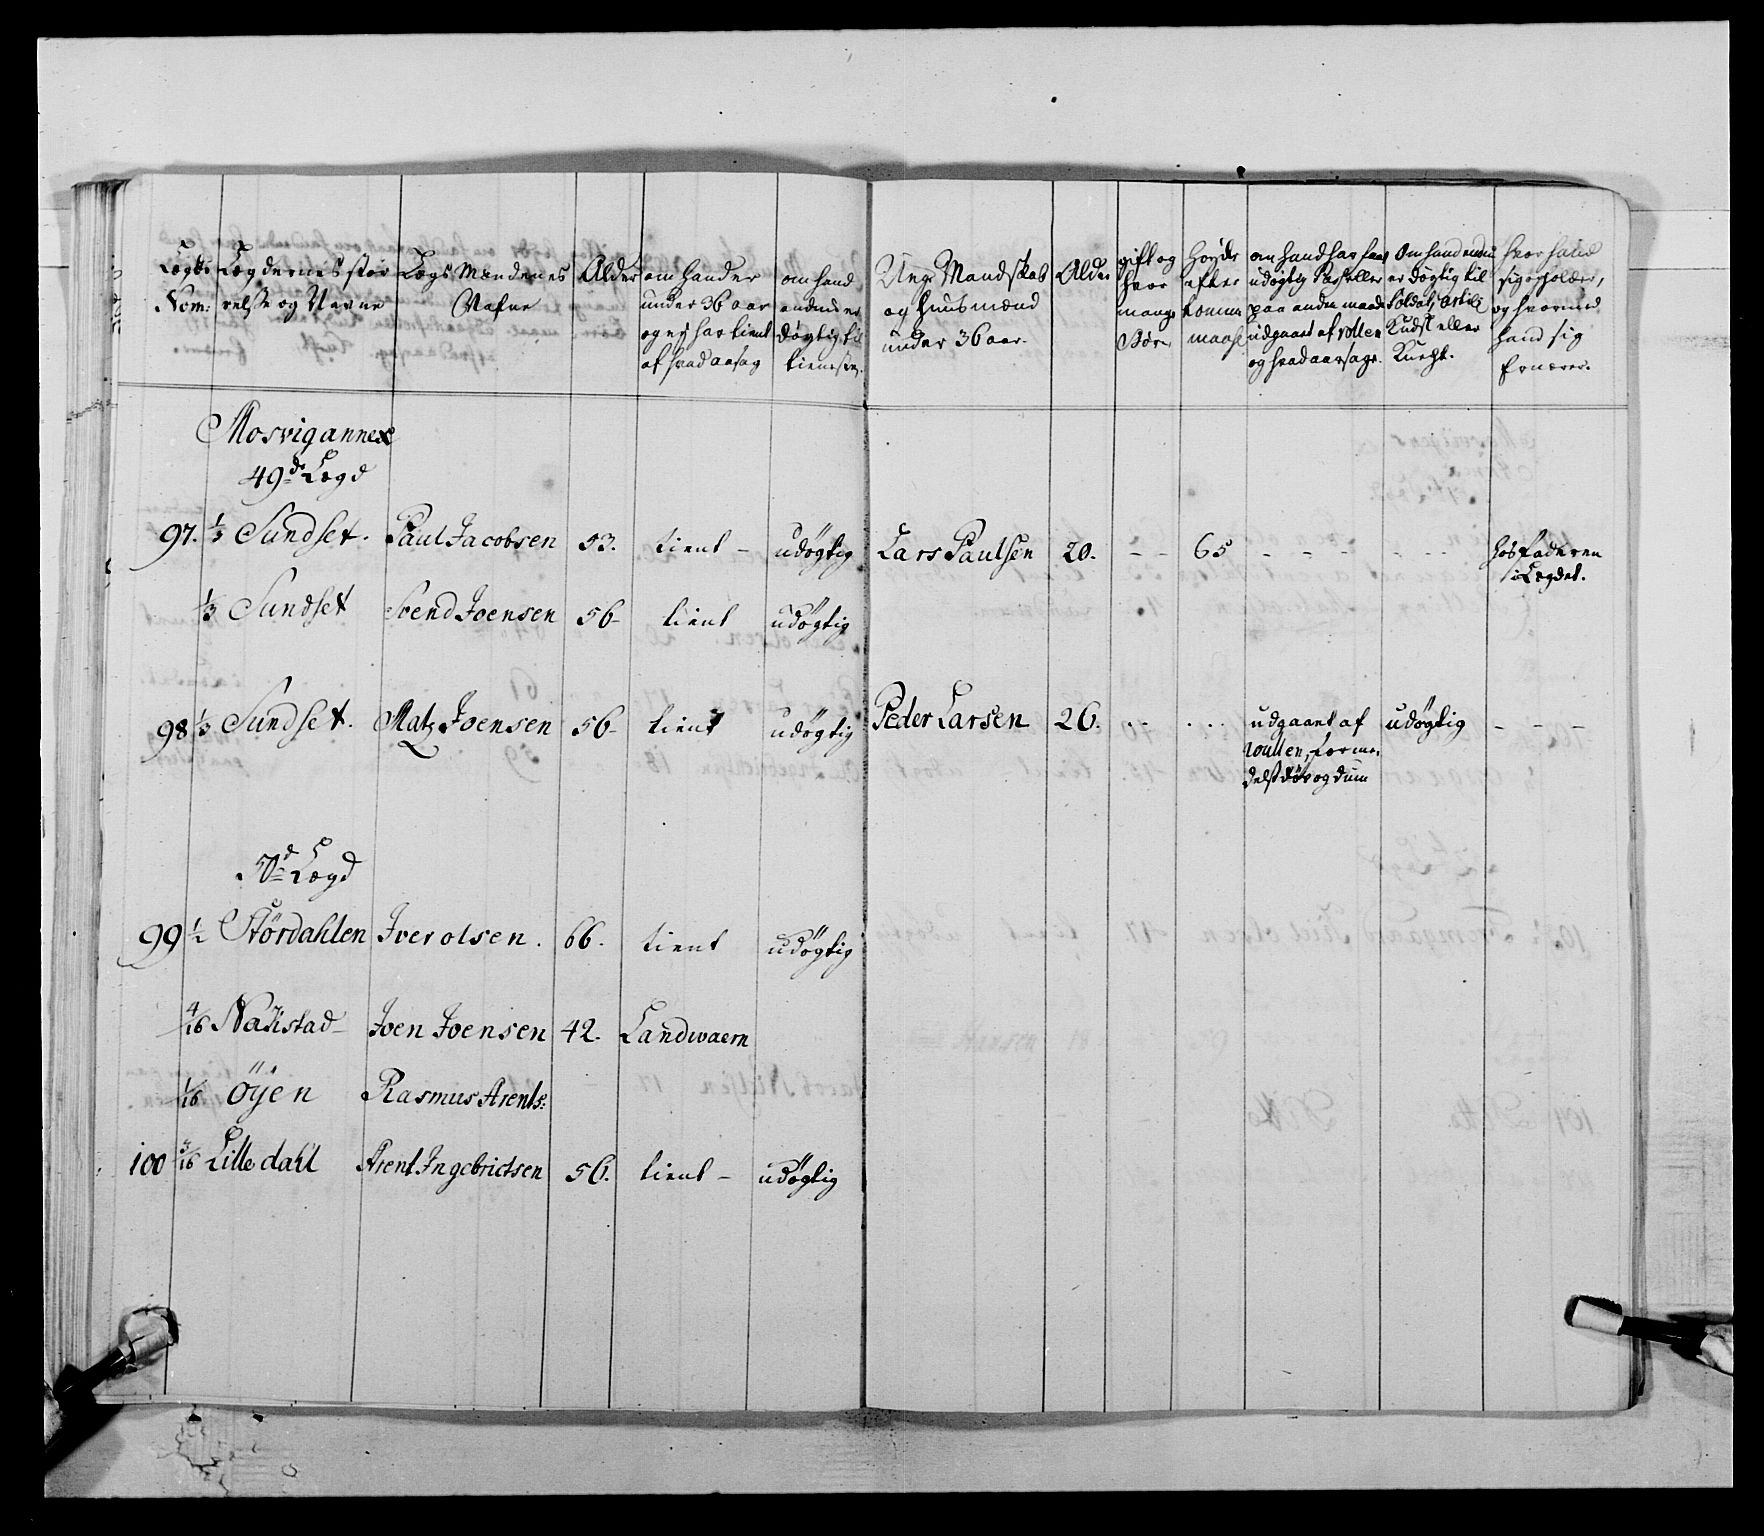 Lægds Nom:
Lægdernis stør relse og Navne
Lægs Mændenes Nafne
Alder
om hand er under 36 aar og ej har tient af hvad aarsag
om hand endnu er døgtig til tienesten.
Ung Mandskab og huusmænd under 36 aar.
Alder
gift og hvor mange Børn
Høyde efter tomme maahl
om hand har faaet udøgtig Pas heller paa anden maade udgaaet af rollen og hvad aarsage.
Om hand endnu er døgtig til Soldat, Artill Kudsk eller Knecht.
hvor hand sig opholder, og hvormed hand sig Ernærer.
Mosvig annex
49de Lægd
97. 1/3 Sundset. Paul Jacobsen 53. tient - udøgtig Lars Paulsen 20. - - 65 - - - - - hos faderen
i Lægdet.
1/3 Sundset Svend Joensen 56- tient udøgtig
98 1/3 Sundset. Matz Joensen 56- tient udøgtig Peder Larsen 26. - - - - - udgaaet af udøgtig - - -
roullen, forme-
delst døv og dum
50de Lægd
99 1/2 Stördahlen Iver olsen. 66. tient udøgtig
4/16 Nahstad- Joen Joensen 42. Landwaern
1/16 öÿen Rasmus Arents:
100 3/16 Lille dahl Arent Ingebrictsen 56. tient - udøgtig